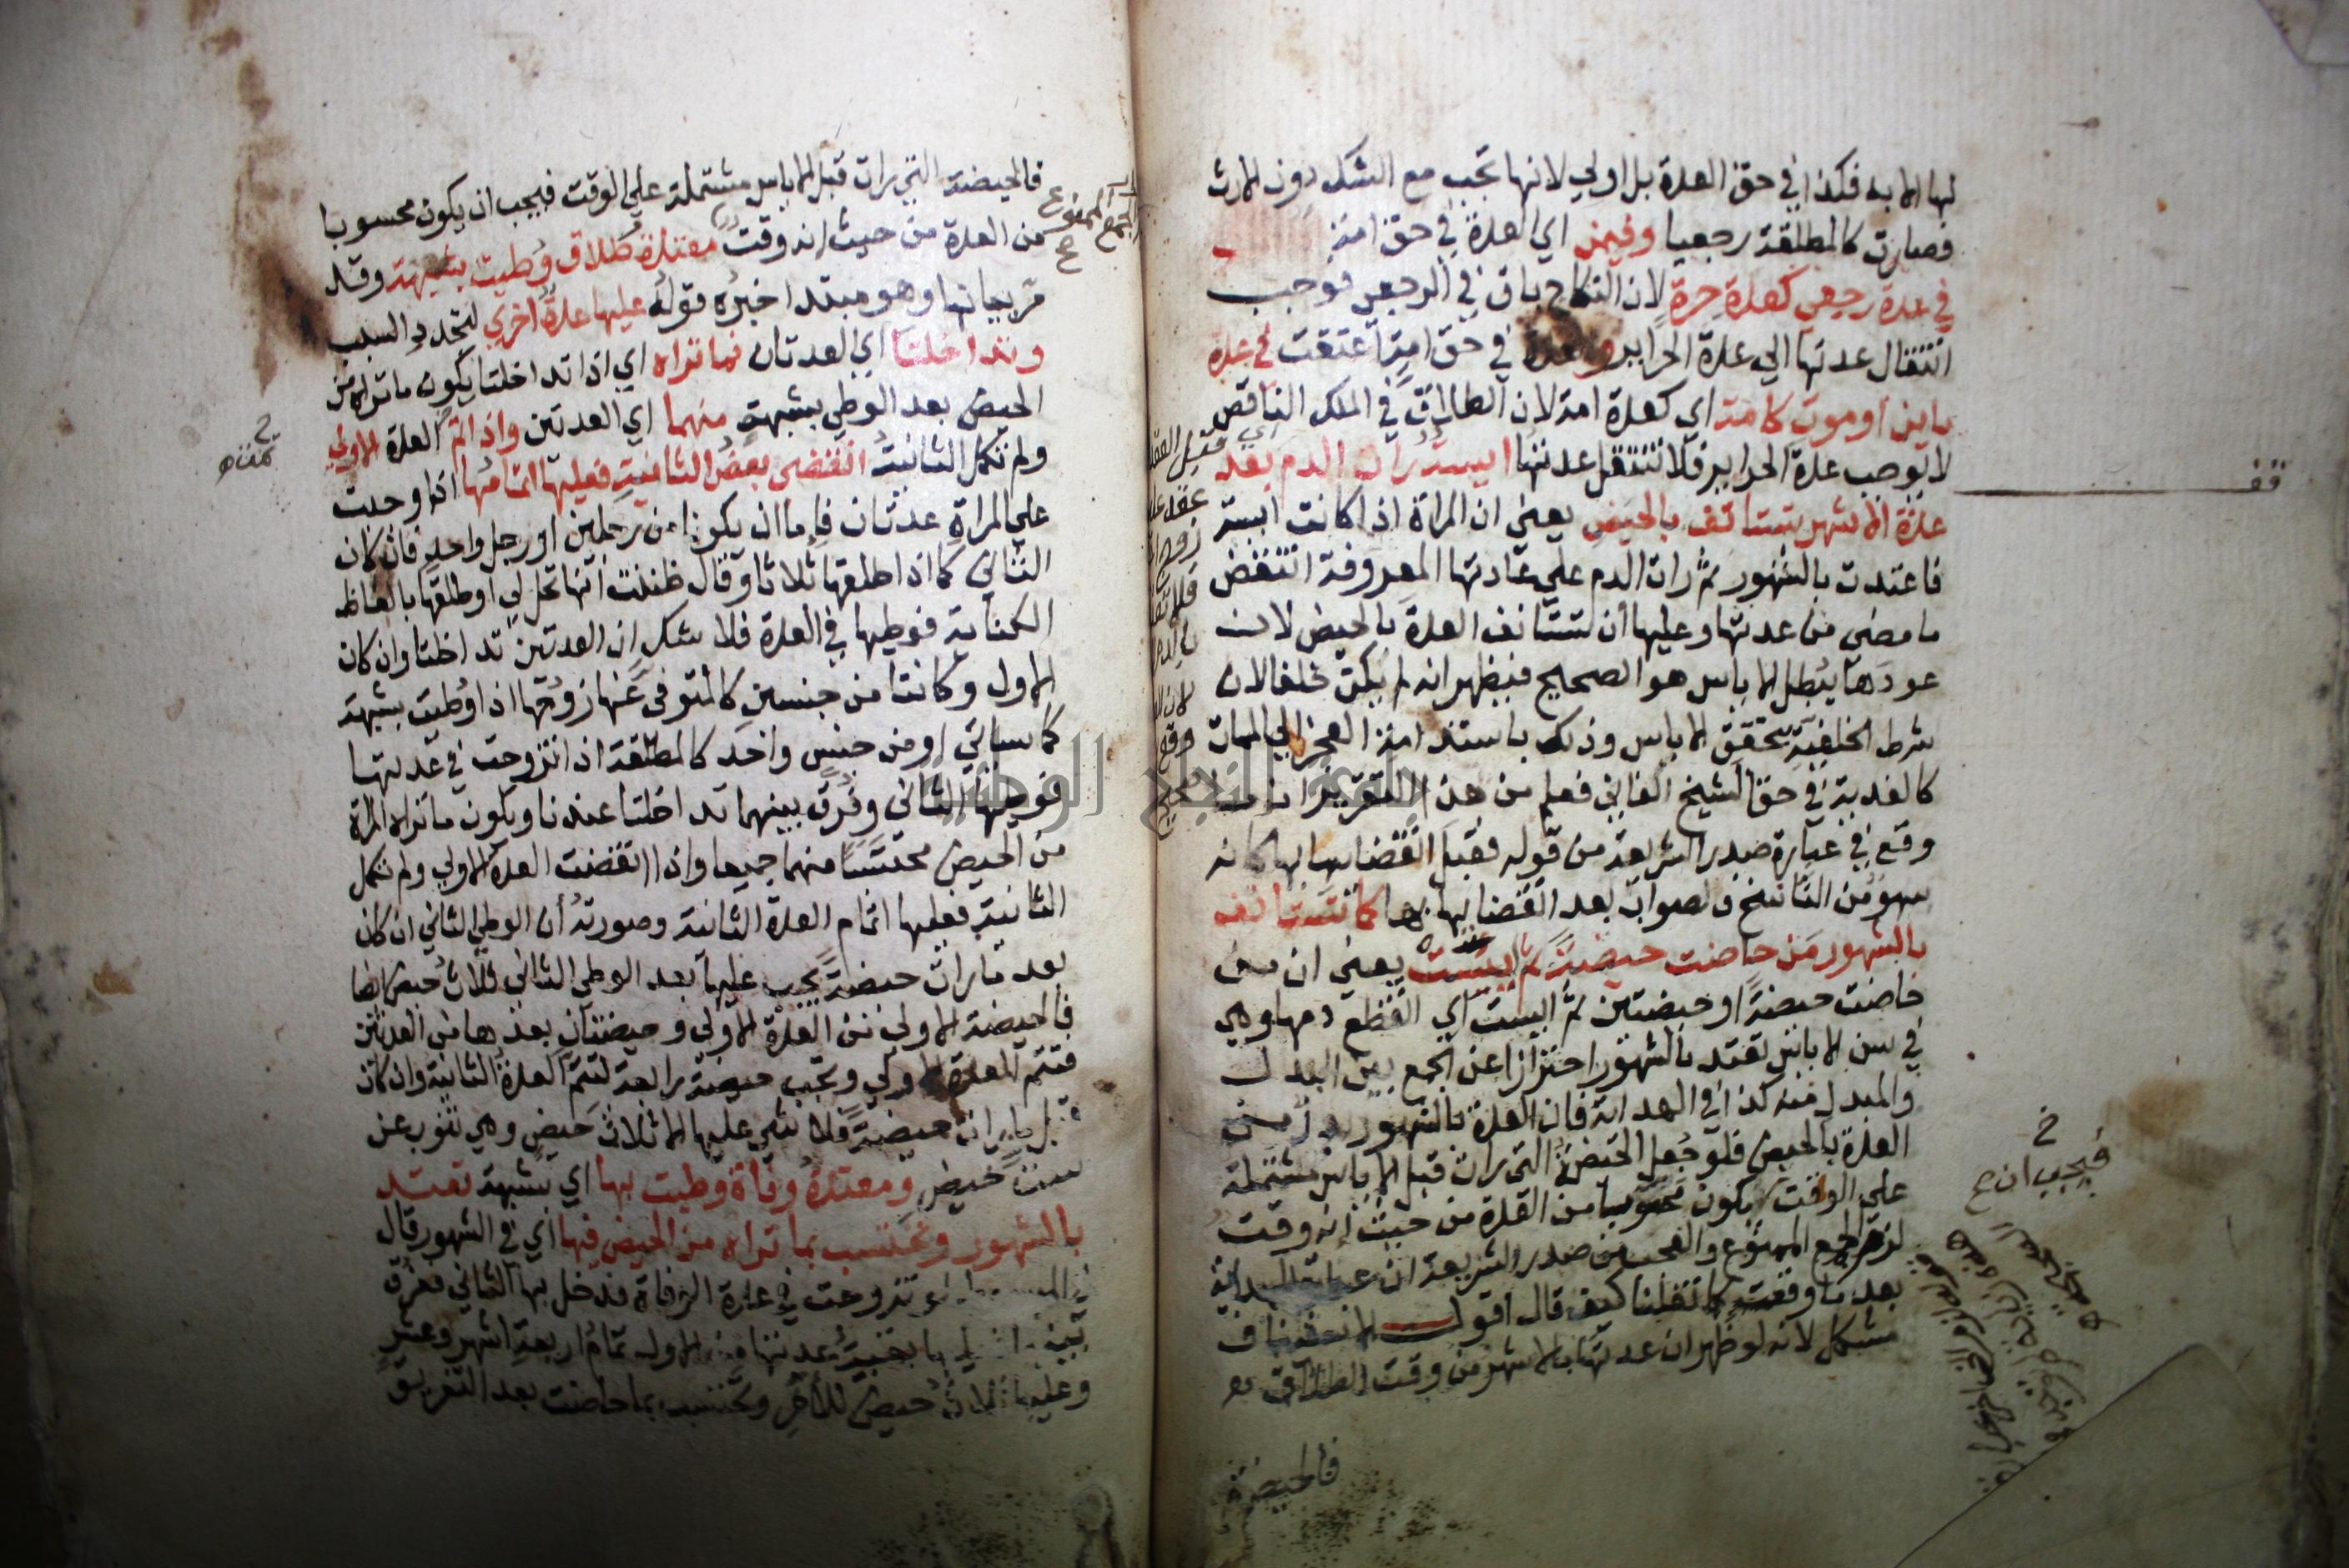 لها الا به فكذا في حق العدة بل اولي لانها تجب مع الشك دون الارث
فصارت كالمطلقة رجعيا وفيمن اي العدة في حق امة
في عدة رجعي كعدة حرة لان النكاح باق في الرجعي فوجب
انتقال عدتها الي عدة الحراير والعدة في حق امة اعتقت في عدة
باين او موت كامة اي كعدة امة لان الطلاق في الملك الناقص
لا يوجب عدة الحراير فلا تنتقل عدتها ايسة رات الدم بعد
عدة الاشهر تستانف بالحيض يعني ان المراة اذا كانت ايسة
فاعتدت بالشهور ثم رات الدم علي عادتها المعروفة انتقض
ما مضي من عدتها وعليها ان تستانف العدة بالحيض لان
عودها يبطل الاياس هو الصحيح فيظهر انه لم يكن خلفا لان
شرط الخلفية تحقق الاياس وذلك باستدامة العجز الي الممات
كالفدية في حق الشيخ الفاني فعلم من هذا التقرير ان ما
وقع في عبارة صدر الشريعة من قوله فقبل انقضايها بها كانه
سهو من الناسخ والصواب بعد انقضايها بها كما تستانف
بالشهور من حاضت حيضة ثم ايست يعني ان من
حاضت حيضة او حيضتين ثم ايست اي انقطع دمها وهي
في سن الاياس تعتد بالشهور احترازا عن الجمع بين البدل
والمبدل منه كذا في الهداية فان العدة بالشهور بدل من
العدة بالحيض فلو جعل الحيضة التي رات قبل الاياس مشتملة
علي الوقت يكون محسوبا من العدة من حيث انه وقت
لزم الجمع الممنوع والعجب من صدر الشريعة ان عبارة الهداية
بعد ما وقعت كما نقلنا كيف قال اقول الاستيناف
مشكل لانه لو ظهر ان عدتها بالاشهر من وقت الطلاق
فالحيضة
قف
خ
فيجب ان
فالحيضة التي رات قبل الاياس مشتملة علي الوقت فيجب ان يكون محسوبا
من العدة من حيث انه وقت معتدة طلاق وطيت بشبهة وقد
مر بيانها وهو مبتدا خبره قوله عليها عدة اخري لتجدد السبب
وتداخلتا اي العدتان فما تراه اي اذا تداخلتا يكون ما تراه من
الحيض بعد الوطي بشبهة منهما اي العدتين واذا تم العدة الاولي
ولم تكمل الثانية انقضي بعض الثانية فعليها اتمامها اذا وجبت
علي المراة عدتان فاما ان يكونا من رجلين او رجل واحد فان كان
الثاني كما اذا طلقها ثلاثا وقال ظننت انها تحل لي او طلقها بالفاظ
الكناية فوطيها في العدة فلا شك ان العدتين تداخلتا وان كان
الاول وكانتا من جنسين كالمتوفي عنها زوجها اذا وطيت بشبهة
كما سياتي او من جنس واحد كالمطلقة اذا تزوجت في عدتها
فوطيها الثاني وفرق بينهما تداخلتا عندنا ويكون ما تراه المراة
من الحيض محتسبا منهما جميعا واذا انقضت العدة الاولي ولم تكمل
الثانية فعليها اتمام العدة الثانية وصورته ان الوطي الثاني ان كان
بعد ما رات حيضة يجب عليها بعد الوطي الثاني ثلاث حيض ايضا
فالحيضة الاولي من العدة الاولي وحيضتان بعدها من العدتين
فتتم العدة الاولي وتجب حيضة رابعة لتتم العدة الثانية وان كان
قبل ما رات حيضة فلا شي عليها الا ثلاث حيض وهي تنوب عن
ست حيض ومعتدة وفاة وطيت بها اي بشبهة تعتد
بالشهور وتحتسب بما تراه من الحيض فيها اي في الشهور قال
تزوجت في عدة الوفاة فدخل بها الثاني ففرق
بينهما بقية عدتها من الاول تمام اربعة اشهر وعشر
وعليها ثلاث حيض للاخر وتحتسب بما حاضت بعد التفريق
الجمع الممنوع
جامعة النجاح الوطنية